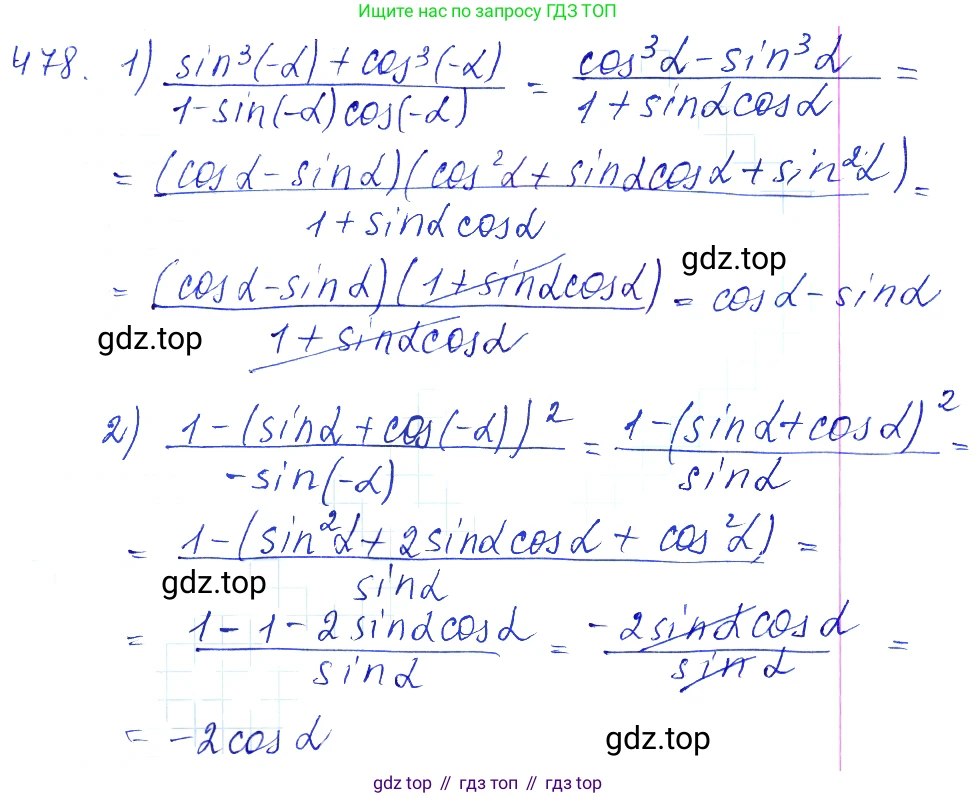 Ищите нас по запросу ГДЗ ТОП
478. 1) (sin³(-α) + cos³(-α))/(1 - sin(-α)cos(-α)) = (cos³α - sin³α)/(1 + sinαcosα) =
= ((cosα - sinα)(cos²α + sinαcosα + sin²α))/(1 + sinαcosα) =
gdz.top
= ((cosα - sinα)(1 + sinαcosα))/(1 + sinαcosα) = cosα - sinα
gdz.top
2) (1 - (sinα + cos(-α))²)/(-sin(-α)) = (1 - (sinα + cosα)²)/(sinα) =
= (1 - (sin²α + 2sinαcosα + cos²α))/(sinα) =
gdz.top
= (1 - 1 - 2sinαcosα)/(sinα) = (-2sinαcosα)/(sinα) =
= -2cosα
gdz.top
gdz top // гдз топ // gdz top